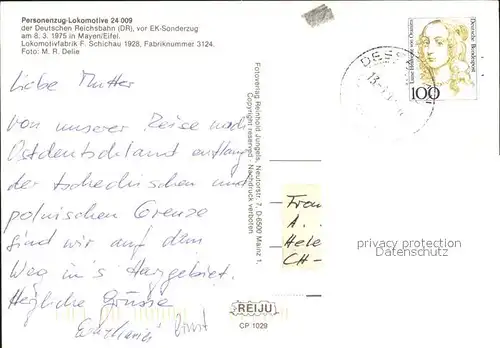 Personenzug-Lokomotive 24 009
der Deutschen Reichsbahn (DR), vor EK-Sonderzug
am 8. 3. 1975 in Mayen/Eifel.
Lokomotivfabrik F. Schichau 1928, Fabriknummer 3124.
Foto: M. R. Delie
Liebe Mutter
von unserer Reise nach
Ostdeutschland entlang
der tschechischen und
polnischen Grenze
sind wir auf dem
Weg in's Harzgebiet.
Herzliche Grüsse
Ernst
Fotoverlag Reinhold Jungels, Neutorstr. 7, D-6500 Mainz 1,
Copyright reserved - Nachdruck verboten
REIJU
CP 1029
Deutsche Bundespost
Luise Henriette von Oranien
100
Frau
A. .
Hele
CH-
privacy protection
Datenschutz